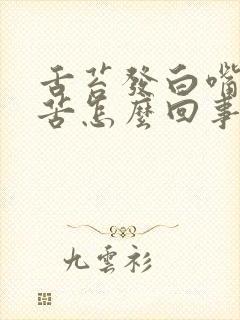 舌苔發白嘴
苦怎麼回事
九雲衫